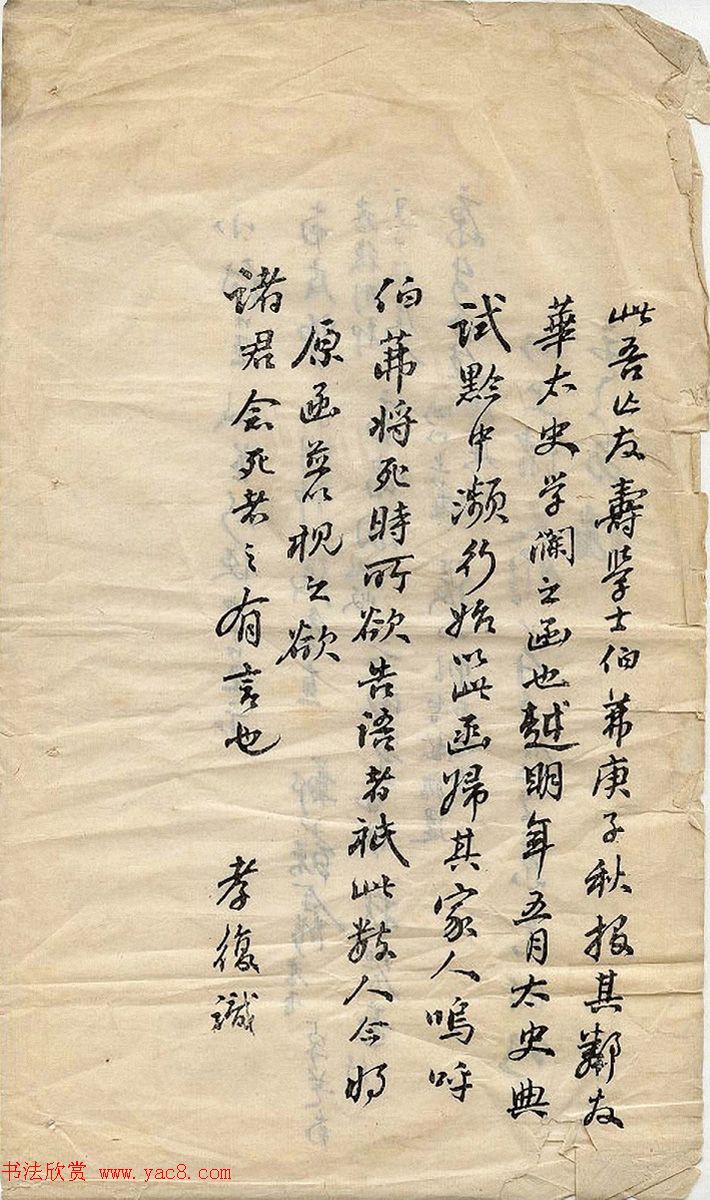 此吾亡友壽學士伯茀庚子秋报其鄰友
華太史学澜之函也越明年五月太史典
試黔中濒行始以此函歸其家人嗚呼
伯茀将死時所欲告语者祇此数人今将
原函並以枧之欲
诸君念死者之有言也
孝復識
书法欣赏 www.yac8.com